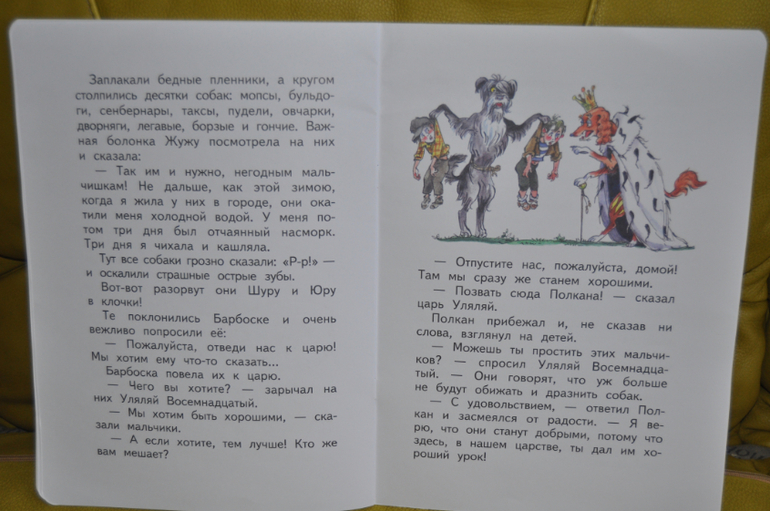 Заплакали бедные пленники, а кругом
столпились десятки собак: мопсы, бульдо-
ги, сенбернары, таксы, пудели, овчарки,
дворняги, легавые, борзые и гончие. Важ-
ная болонка Жужу посмотрела на них
и сказала:
— Так им и нужно, негодным маль-
чишкам! Не дальше, как этой зимою,
когда я жила у них в городе, они ока-
тили меня холодной водой. У меня по-
том три дня был отчаянный насморк.
Три дня я чихала и кашляла.
Тут все собаки грозно сказали: «Р-р!» —
и оскалили страшные острые зубы.
Вот-вот разорвут они Шуру и Юру
в клочки!
Те поклонились Барбоске и очень
вежливо попросили её:
— Пожалуйста, отведи нас к царю!
Мы хотим ему что-то сказать...
Барбоска повела их к царю.
— Чего вы хотите? — зарычал на
них Уляляй Восемнадцатый.
— Мы хотим быть хорошими, — ска-
зали мальчики.
— А если хотите, тем лучше! Кто же
вам мешает?
— Отпустите нас, пожалуйста, домой!
Там мы сразу же станем хорошими.
— Позвать сюда Полкана! — сказал
царь Уляляй.
Полкан прибежал и, не сказав ни
слова, взглянул на детей.
— Можешь ты простить этих мальчи-
ков? — спросил Уляляй Восемнадца-
тый. — Они говорят, что уж больше
не будут обижать и дразнить собак.
— С удовольствием, — ответил Пол-
кан и засмеялся от радости. — Я ве-
рю, что они станут добрыми, потому что
здесь, в нашем царстве, ты дал им хо-
роший урок!